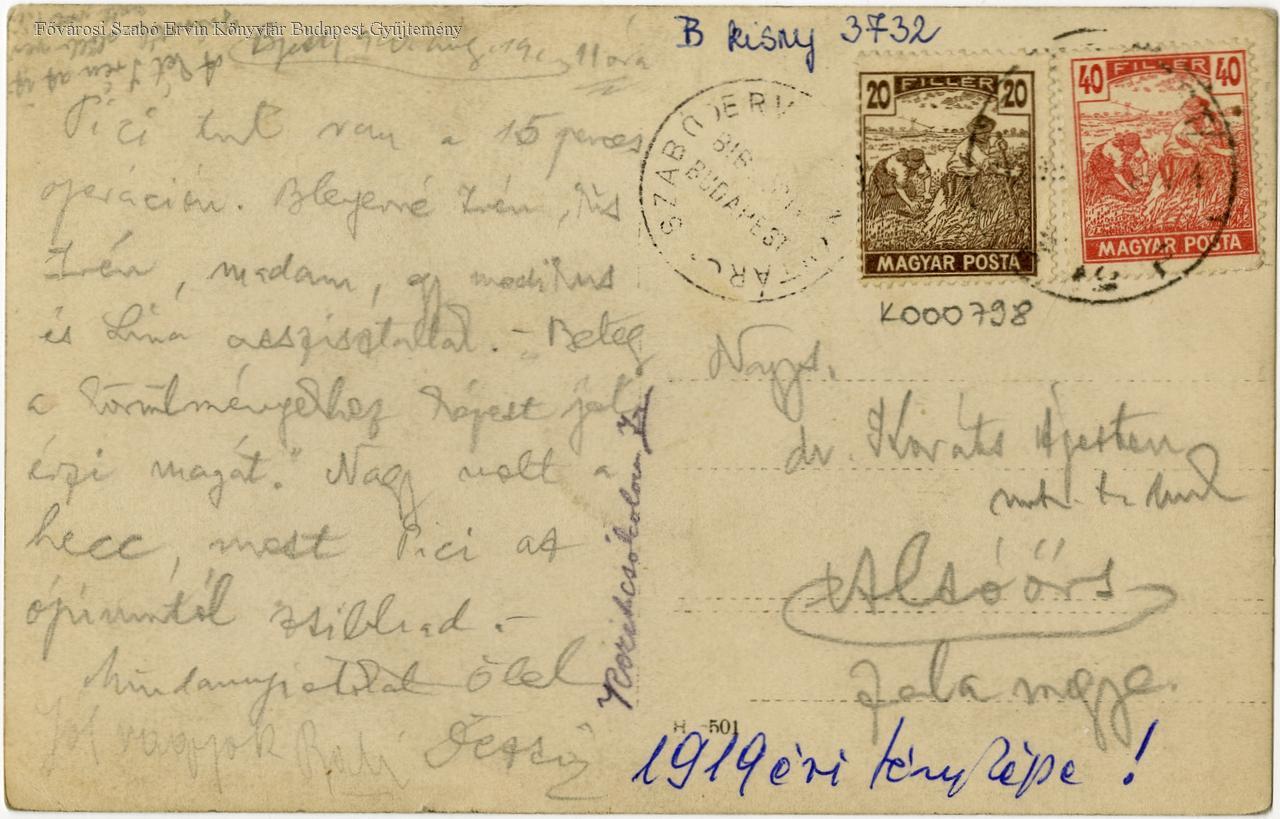 Fővárosi Szabó Ervin Könyvtár Budapest Gyűjtemény
B kisny 3732
11 óra
Pici túl van a 15 perces
operáción. Bleyerné Irén,
Irén, madam, egy medikus
és Lina asszisztáltak. – "Beteg
a körülményekhez képest jól
érzi magát." Nagy volt a
hecc, most Pici az
ópiumtól zsibbad. –
Mindannyiatokat ölel
Jól vagyok
Kezeit csókolom
20 FILLÉR 20
MAGYAR POSTA
40 FILLÉR 40
MAGYAR POSTA
SZABÓ ERV
BUDAPEST
K000798
Nags.
dr. Kováts
Alsóörs
Zala megye.
H 501
1919 évi fényképe!